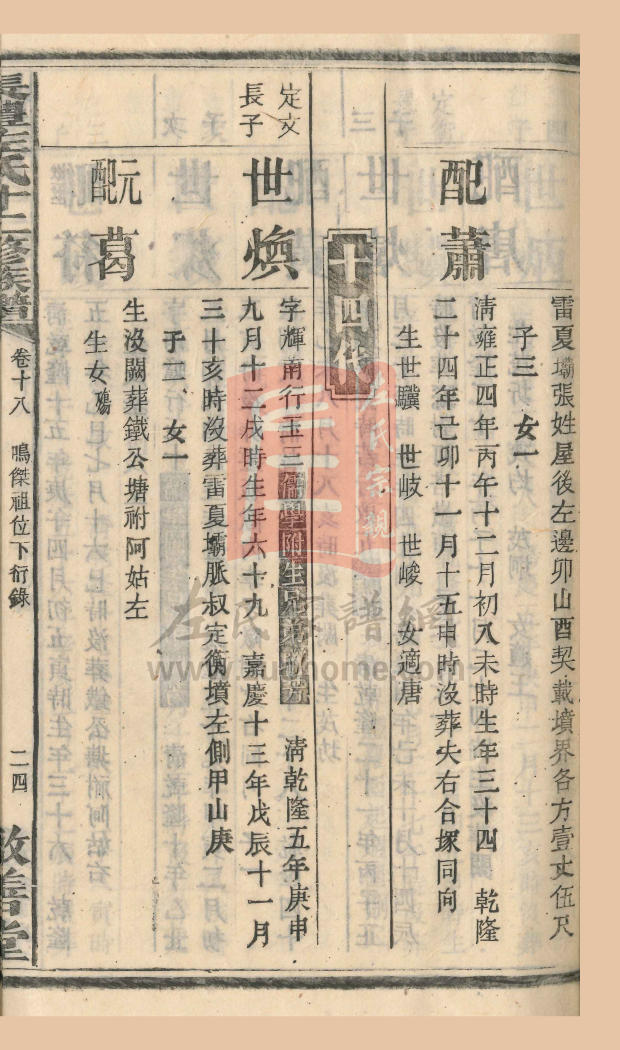 雷夏壩張姓屋後左邊卯山酉契載墳界各方壹丈伍尺
子三 女一
配蕭
清雍正四年丙午十二月初八未時生年三十四 乾隆
二十四年己卯十一月十五申時沒葬夫右合塚同向
生世驥 世岐 世峻 女適唐
十四代
定文長子
世煥
字輝南行玉三
清乾隆五年庚申
九月十二戌時生年六十九 嘉慶十三年戊辰十一月
三十亥時沒葬雷夏壩脈叔定衡墳左側甲山庚
子二 女一
元配葛
生沒闕葬鐵公塘祔阿姑左
生女殤
長豐左氏十二修族譜
卷十八
鳴傑祖位下衍錄
二四
敦善堂
左氏宗親
左氏家譜網